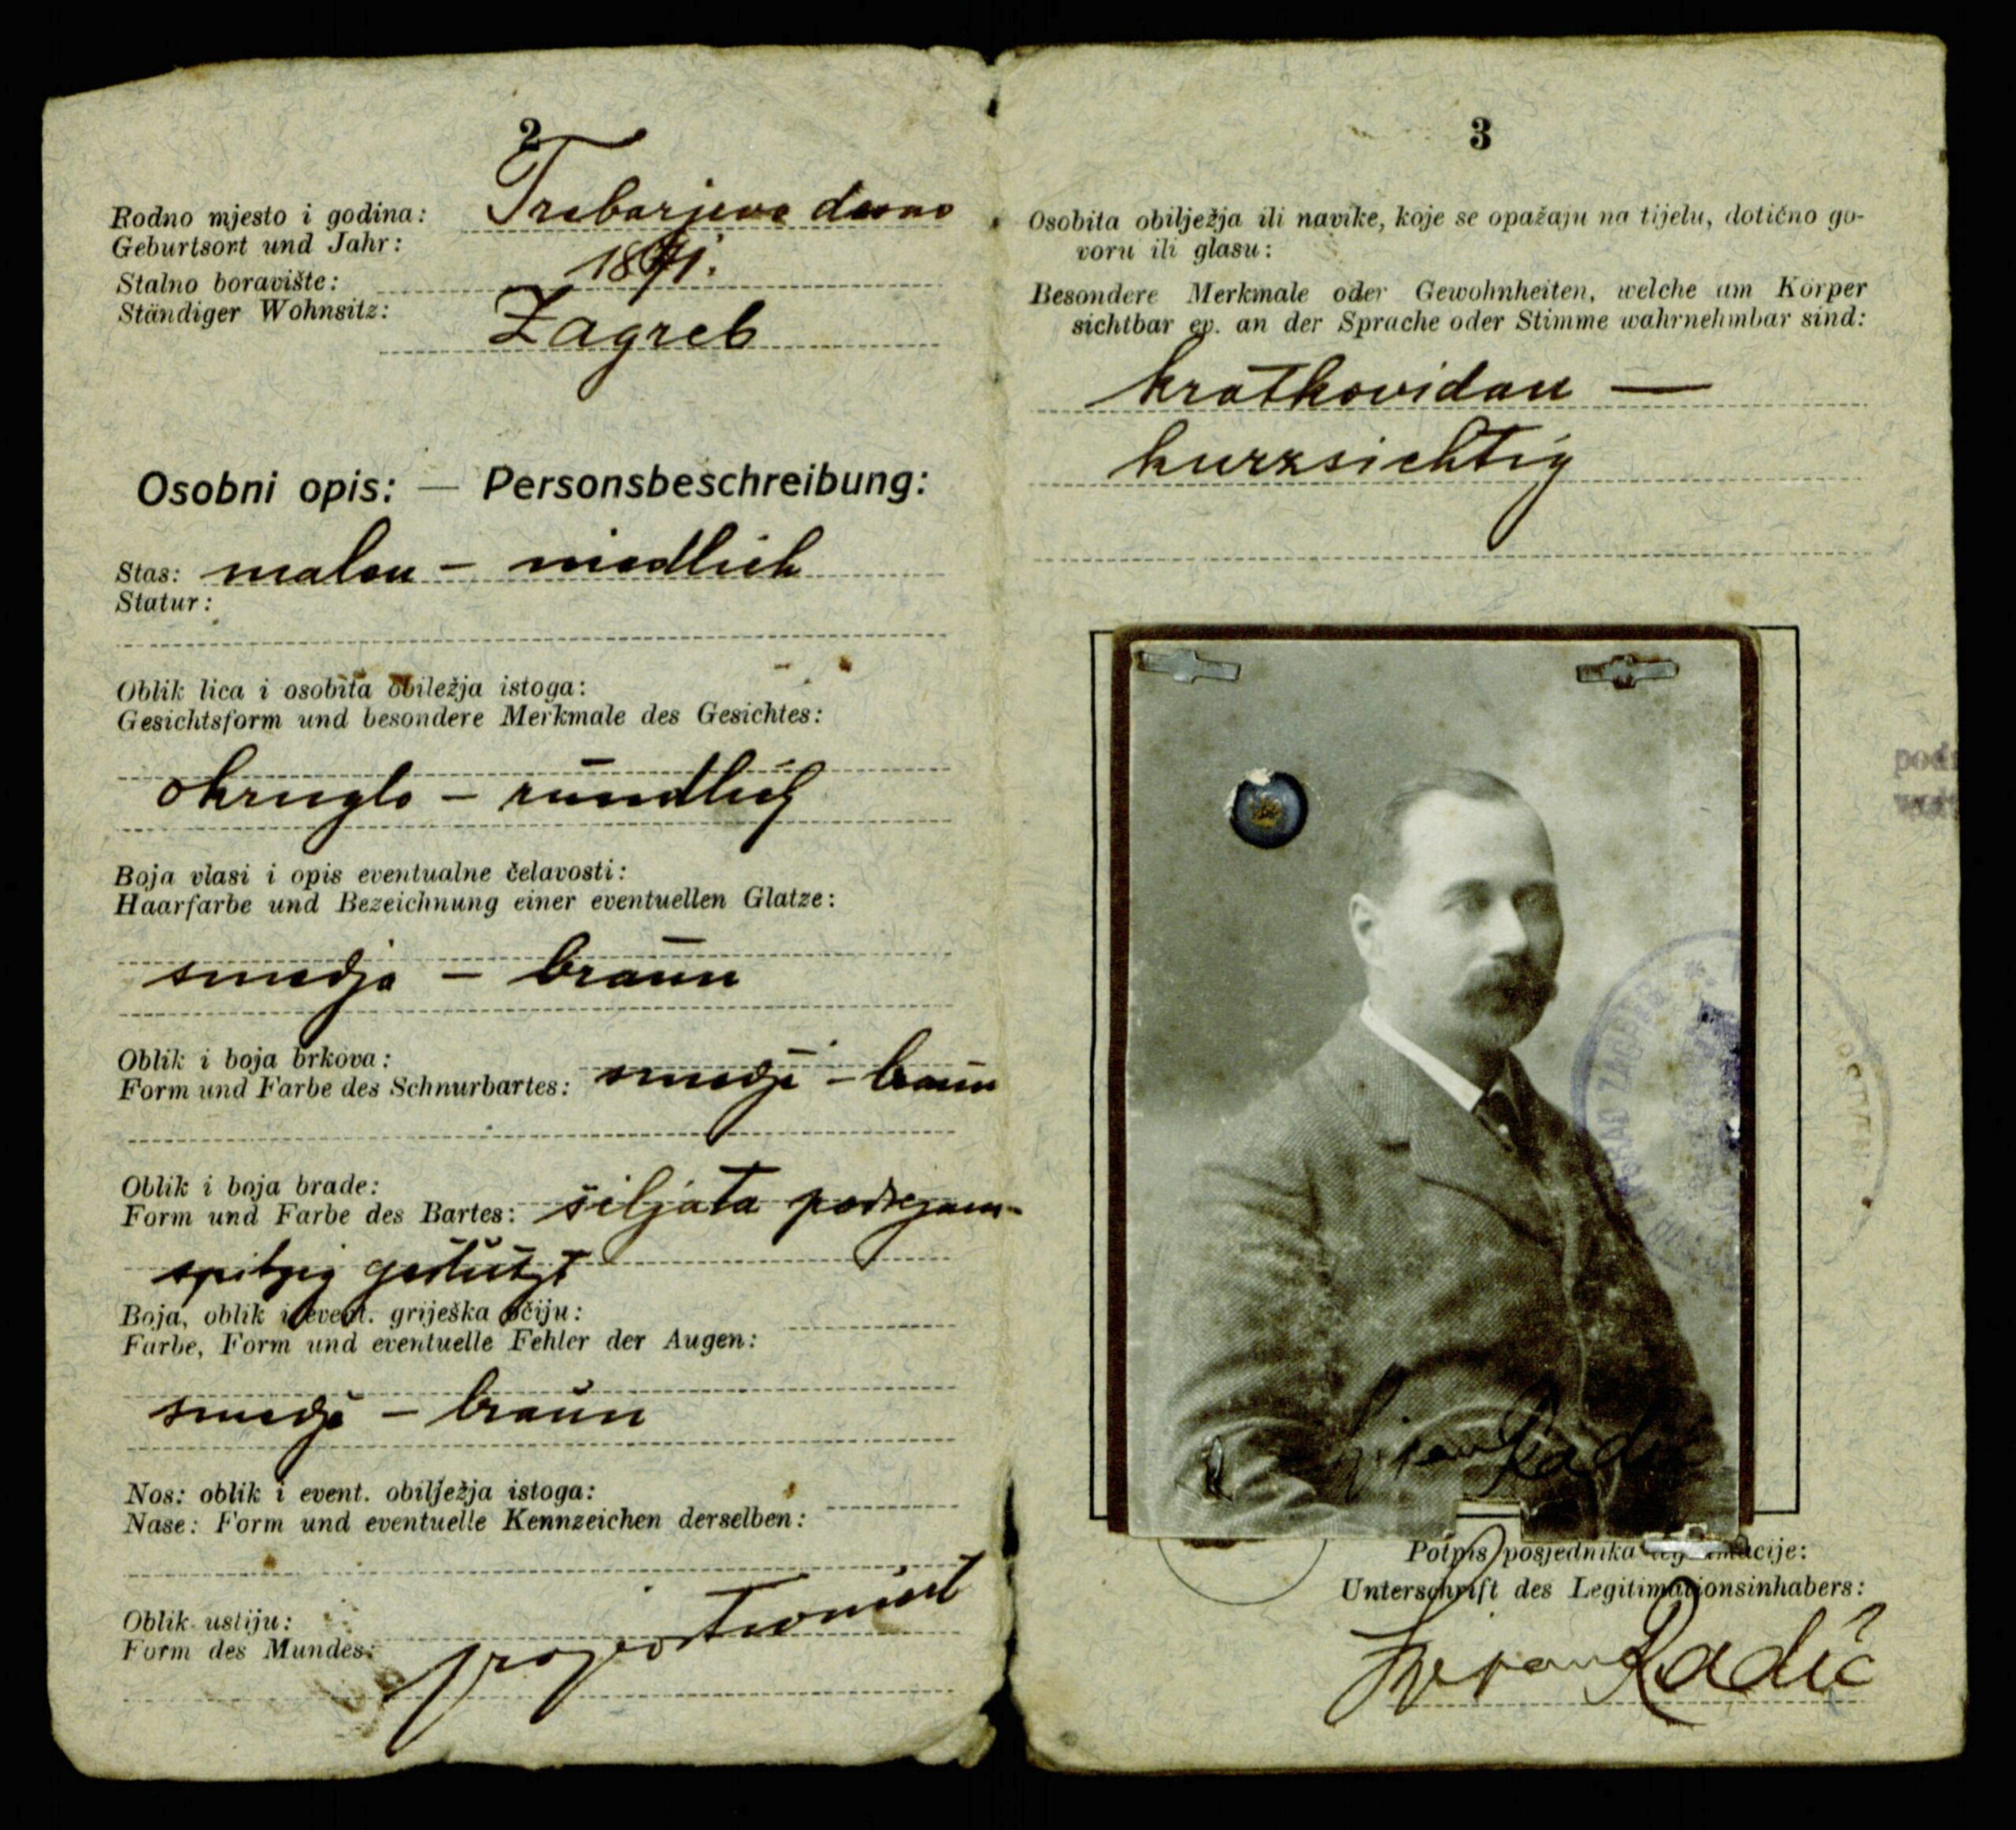 2
Rodno mjesto i godina: Trebarjevo desno
Geburtsort und Jahr:
1871.
Stalno boravište:
Ständiger Wohnsitz: Zagreb
Osobni opis: — Personsbeschreibung:
Stas: malen – niedlich
Statur:
Oblik lica i osobita obiležja istoga:
Gesichtsform und besondere Merkmale des Gesichtes:
okruglo – rundlich
Boja vlasi i opis eventualne čelavosti:
Haarfarbe und Bezeichnung einer eventuellen Glatze:
smedja – braun
Oblik i boja brkova:
Form und Farbe des Schnurbartes: smedji – braun
Oblik i boja brade:
Form und Farbe des Bartes: šiljata
spitzig gestutzt
Boja, oblik i event. griješka očiju:
Farbe, Form und eventuelle Fehler der Augen:
smedje – braun
Nos: oblik i event. obilježja istoga:
Nase: Form und eventuelle Kennzeichen derselben:
Oblik ustiju:
Form des Mundes:
proportioniert
3
Osobita obilježja ili navike, koje se opažaju na tijelu, dotično go-
voru ili glasu:
Besondere Merkmale oder Gewohnheiten, welche am Körper
sichtbar ev. an der Sprache oder Stimme wahrnehmbar sind:
kratkovidan —
kurzsichtig
ZAGREB
Radić
Potpis posjednika
Unterschrift des Legitimationsinhabers:
Stjepan Radić